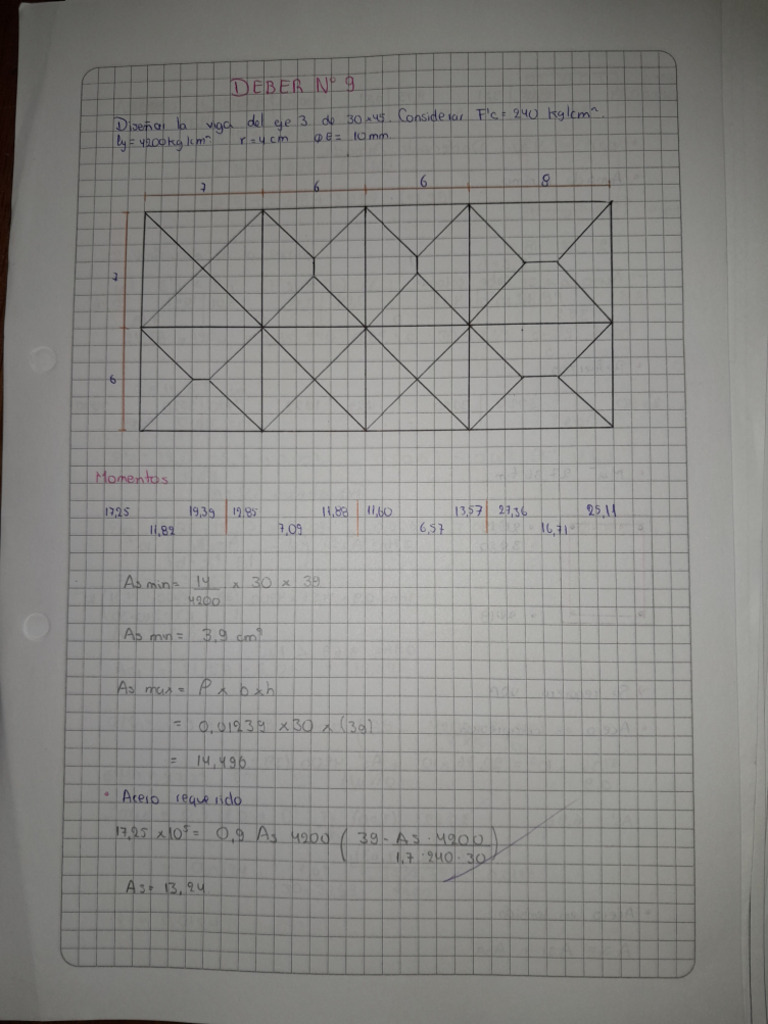 DEBER N° 9
Diseñar la viga del eje 3 de 30x45. Considerar F'c = 240 kg/cm²
fy = 4200 kg/cm² r = 4 cm ΦE = 10 mm.
7 6 6 8
7
6
Momentos
17,25 19,39 12,85 11,88 11,60 13,57 27,36 25,11
11,82 7,09 6,57 16,71
As min = 14/4200 x 30 x 39
As min = 3.9 cm²
As max = P x b x h
= 0,01239 x 30 x (39)
= 14,496
• Acero requerido
17,25 x10⁵ = 0,9 As 4200 ( 39 - As · 4200 / 1,7 · 240 · 30 )
As = 13,24